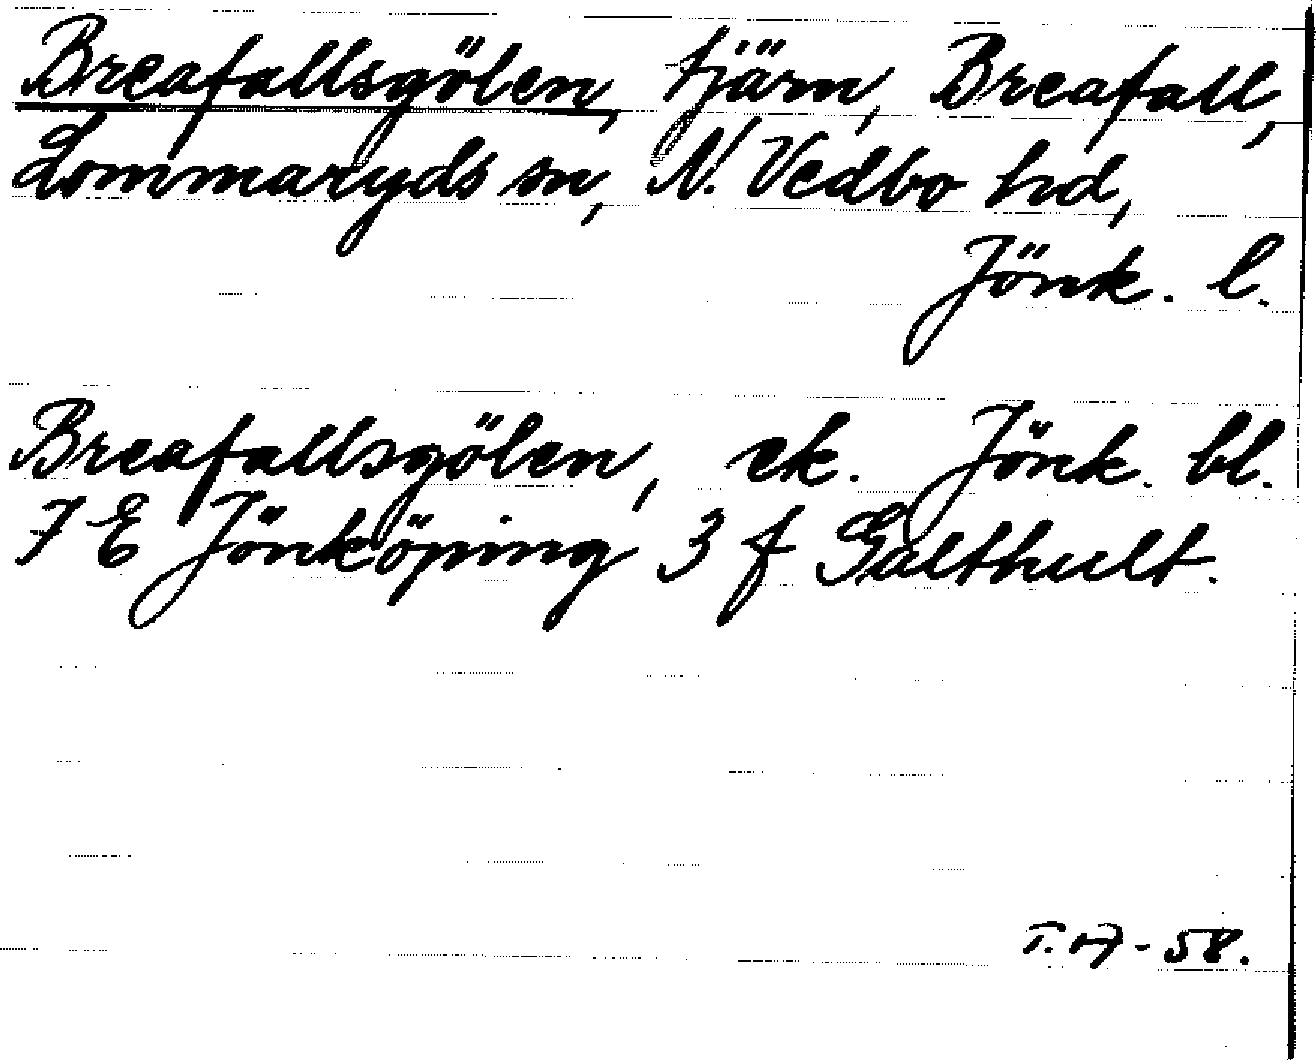 Breafallsgölen, tjärn, Breafall,
Lommaryds sn, N. Vedbo hd,
Jönk. l.
Breafallsgölen, ek. Jönk. bl.
7 E Jönköping 3 f Galthult.
58.